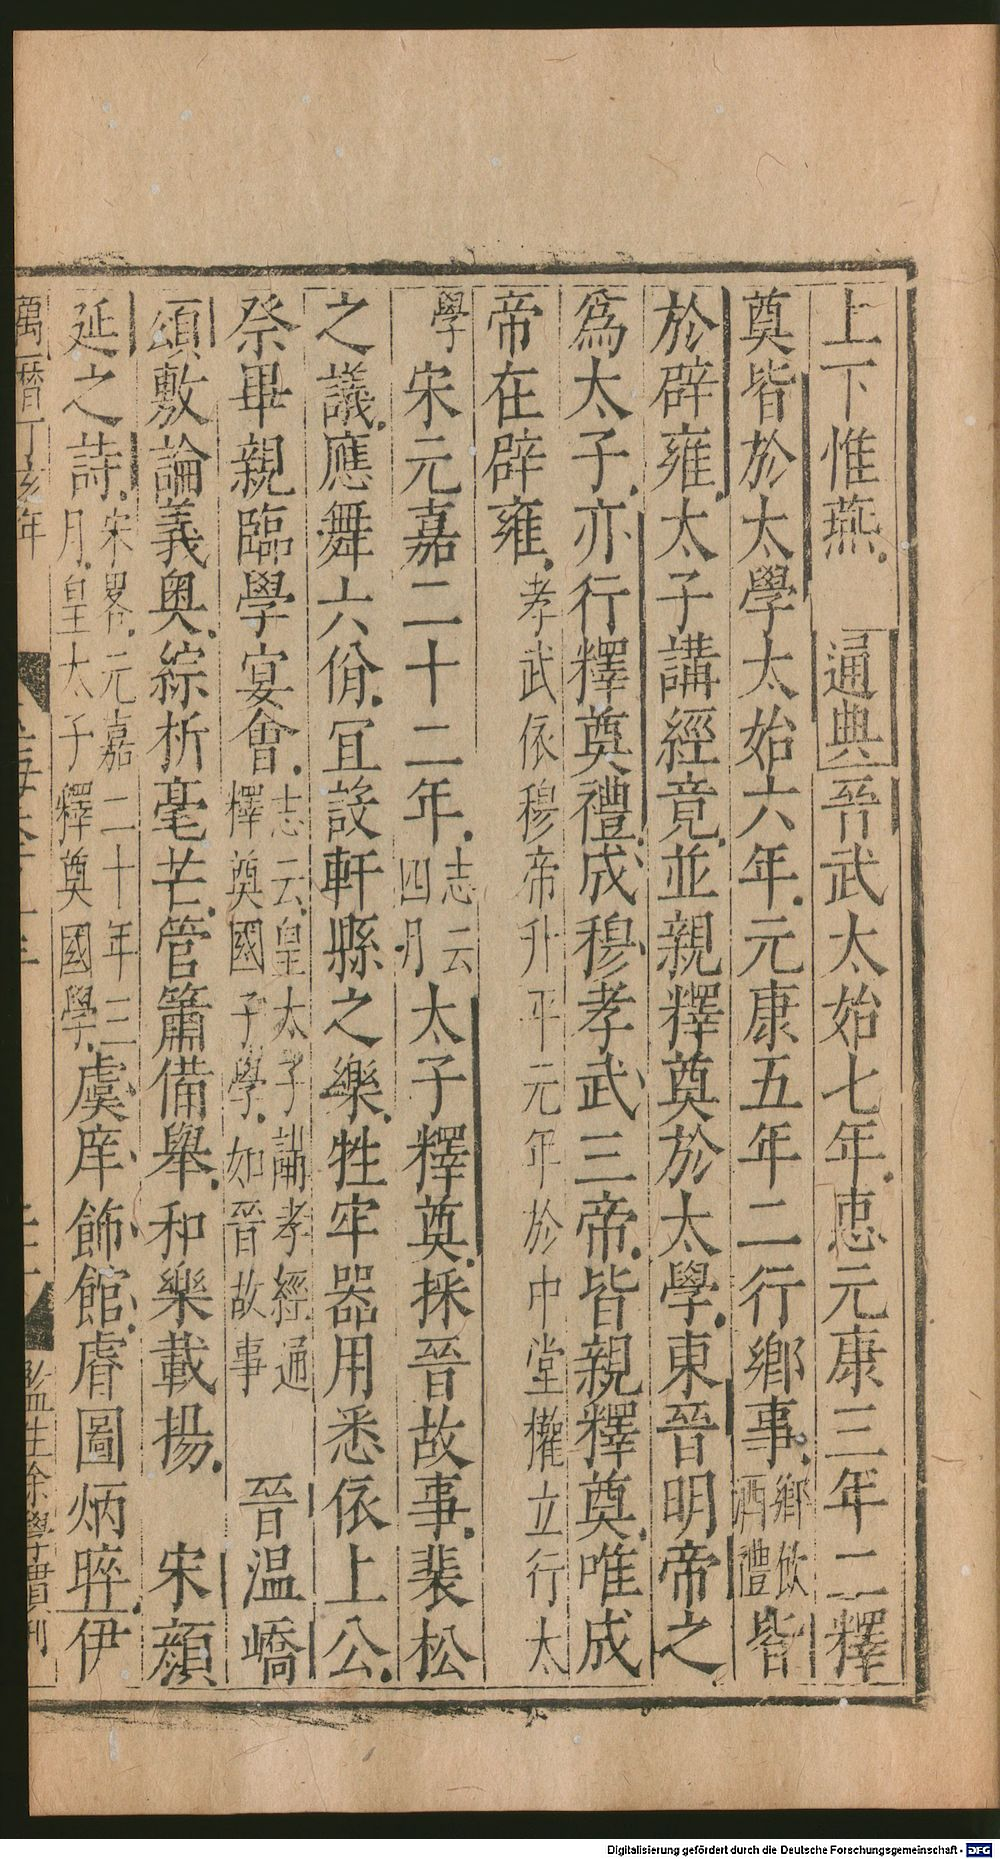 上下惟燕。 通典晉武太始七年。惠元康三年二釋
奠皆於太學太始六年。元康五年二行鄉事。鄉飲酒禮皆
於辟雍。太子講經竟。並親釋奠於太學。東晉明帝之
為太子。亦行釋奠禮。成穆孝武三帝。皆親釋奠。唯成
帝在辟雍。孝武依穆帝升平元年於中堂權立行太
學 宋元嘉二十二年。志云四月太子釋奠。採晉故事。裴松
之議。應舞六佾。宜設軒縣之樂。牲牢器用悉依上公。
祭畢親臨學宴會。志云皇太子講孝經通釋奠國子學。如晉故事 晉溫嶠
頌敷論義奧。綜析毫芒。管簫備舉。和樂載揚。 宋顏
延之詩。宋畧。元嘉二十年三月。皇太子釋奠國學。虞庠飾館。睿圖炳晬。伊
萬曆丁亥年
監生徐學
Digitalisierung gefördert durch die Deutsche Forschungsgemeinschaft - DFG